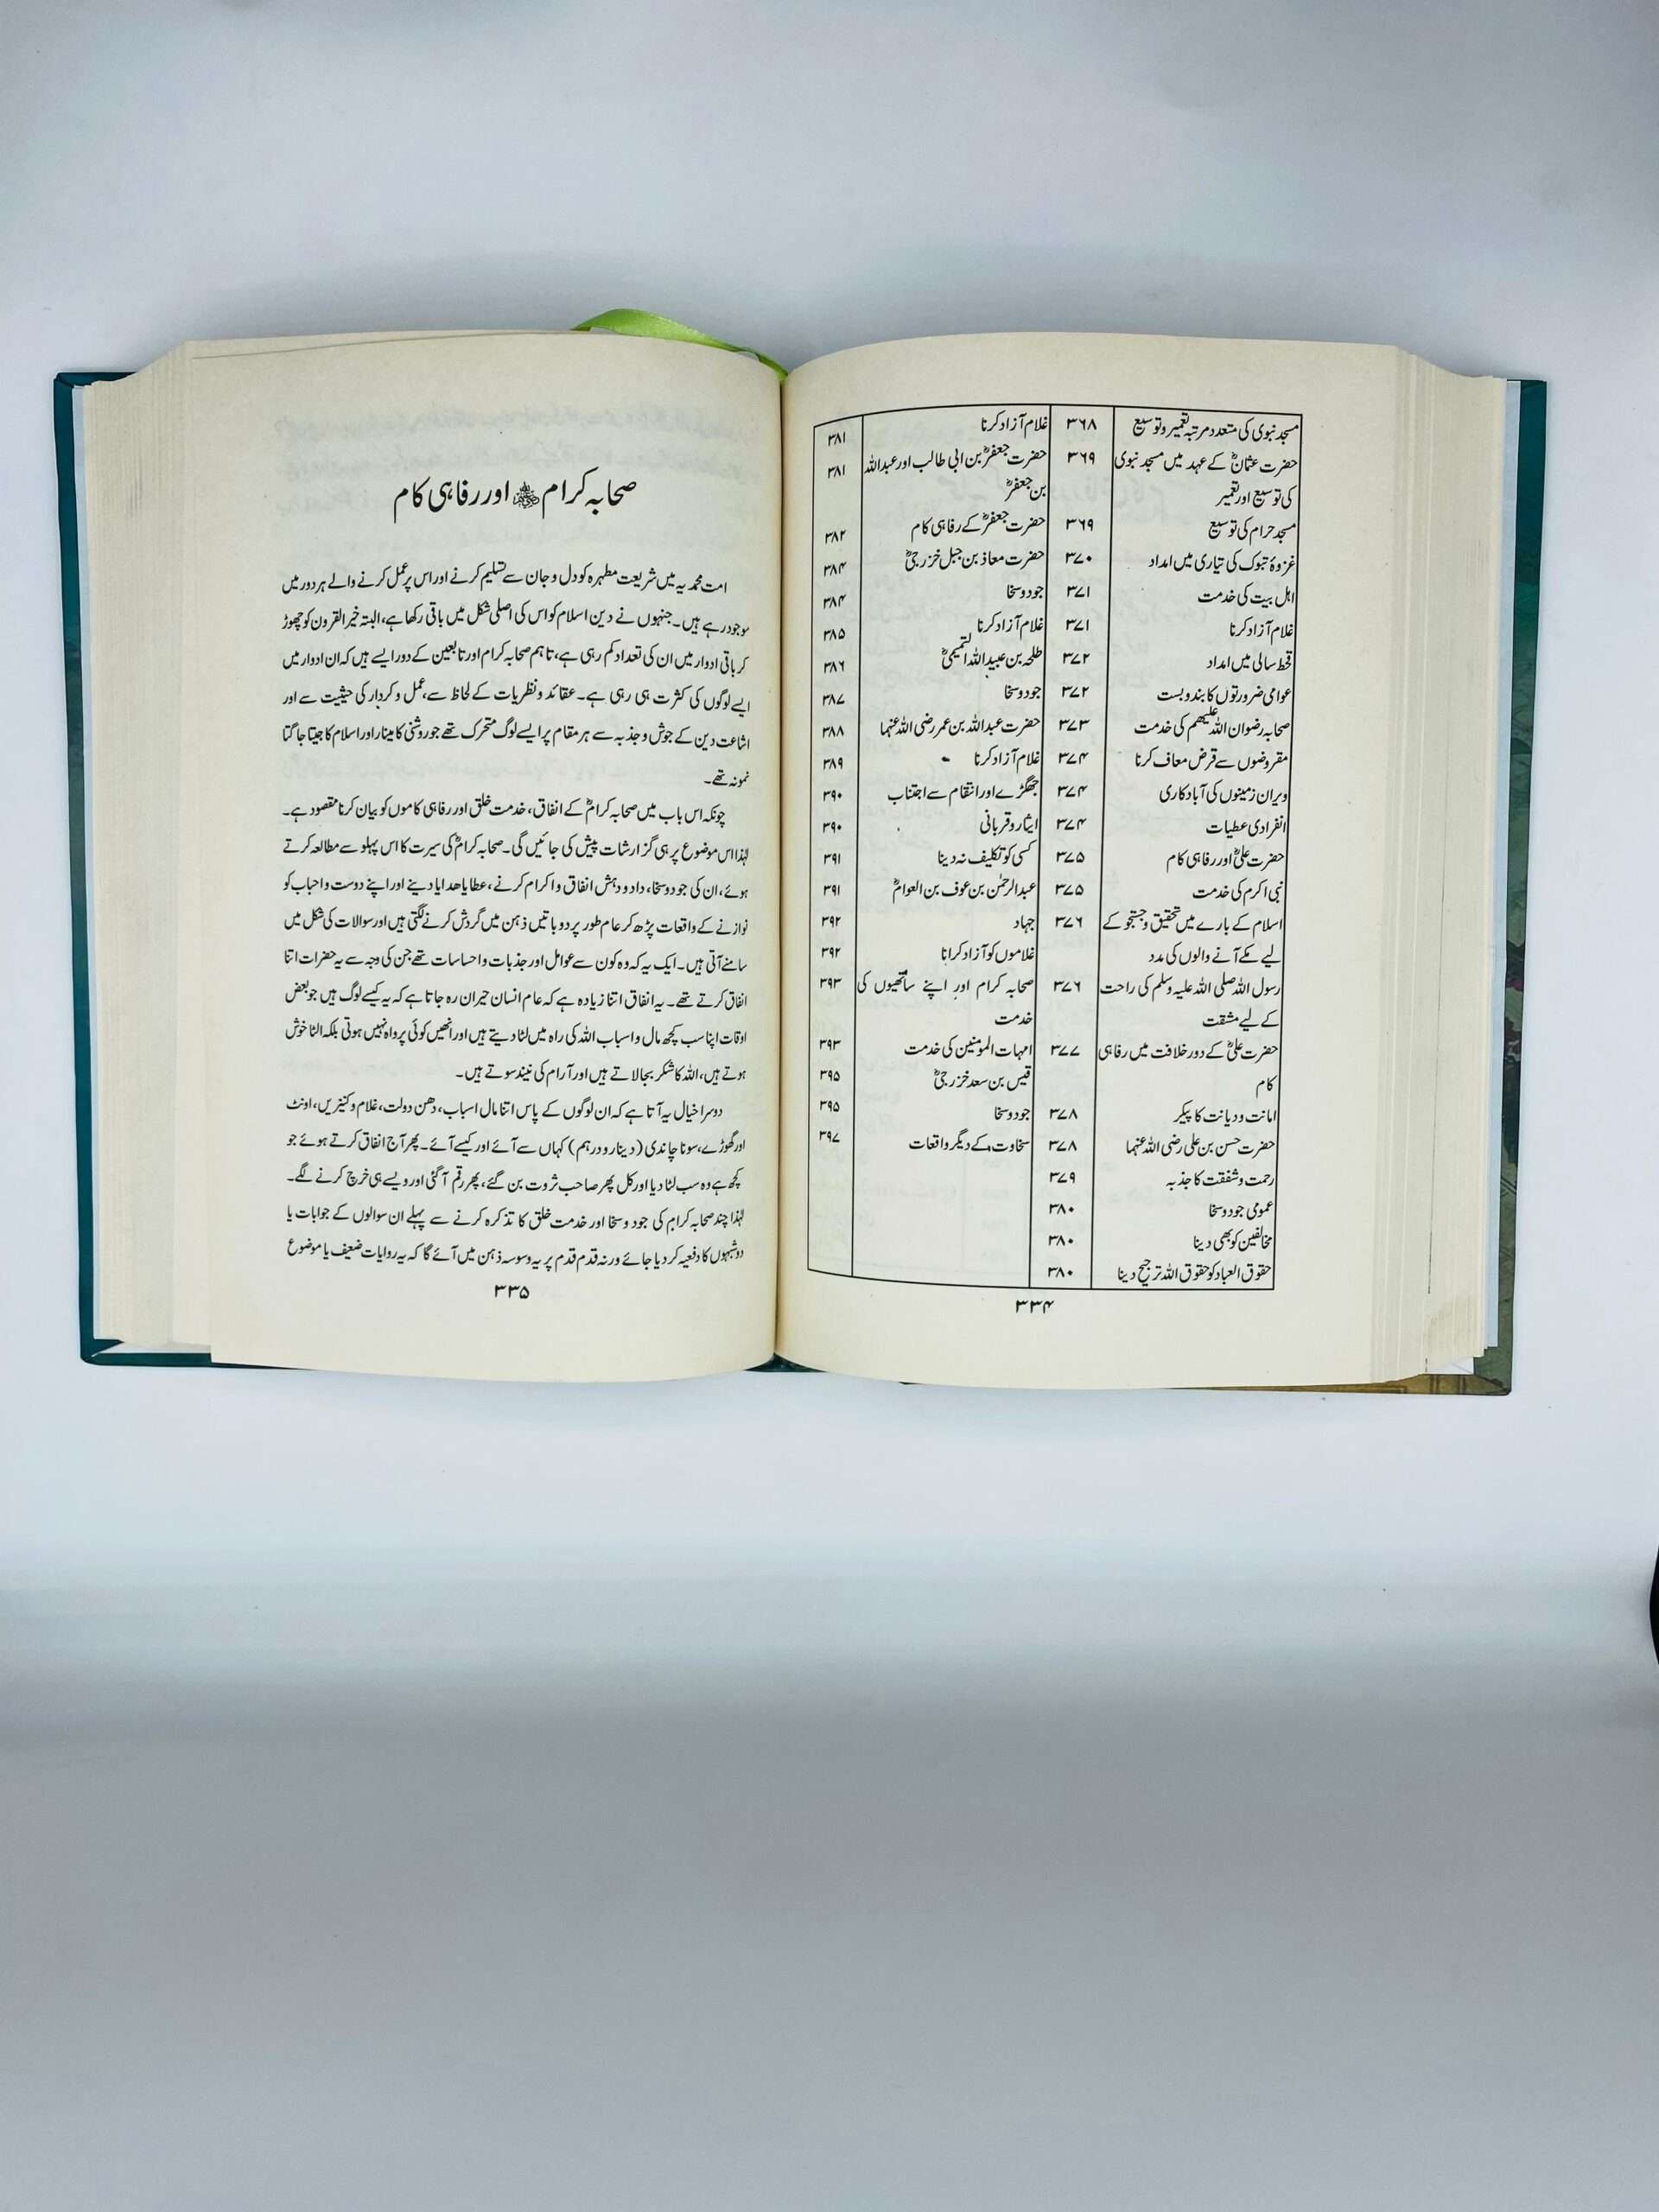 مسجد نبوی کی متعدد مرتبہ تعمیر و توسیع ۳۶۸
حضرت عثمانؓ کے عہد میں مسجد نبوی ۳۶۹
کی توسیع اور تعمیر
مسجد حرام کی توسیع ۳۶۹
غزوۂ تبوک کی تیاری میں امداد ۳۷۰
اہل بیت کی خدمت ۳۷۱
غلام آزاد کرنا ۳۷۱
قحط سالی میں امداد ۳۷۲
عوامی ضرورتوں کا بندوبست ۳۷۲
صحابہ رضوان اللہ علیھم کی خدمت ۳۷۳
مقروضوں سے قرض معاف کرنا ۳۷۴
ویران زمینوں کی آبادکاری ۳۷۴
انفرادی عطیات ۳۷۴
حضرت علیؓ اور رفاہی کام ۳۷۵
نبی اکرم کی خدمت ۳۷۵
اسلام کے بارے میں تحقیق و جستجو کے ۳۷۶
لیے مکے آنے والوں کی مدد
رسول اللہ صلی اللہ علیہ وسلم کی راحت ۳۷۶
کے لیے مشقت
حضرت علیؓ کے دور خلافت میں رفاہی ۳۷۷
کام
امانت و دیانت کا پیکر ۳۷۸
حضرت حسن بن علی رضی اللہ عنہما ۳۷۸
رحمت و شفقت کا جذبہ ۳۷۹
عمومی جود و سخا ۳۸۰
مخالفین کو بھی دینا ۳۸۰
حقوق العباد کو حقوق اللہ ترجیح دینا ۳۸۰
غلام آزاد کرنا ۳۸۱
حضرت جعفرؓ بن ابی طالب اور عبداللہ ۳۸۱
بن جعفرؓ
حضرت جعفرؓ کے رفاہی کام ۳۸۲
حضرت معاذ بن جبل خزرجیؓ ۳۸۴
جود و سخا ۳۸۴
غلام آزاد کرنا ۳۸۵
طلحہ بن عبید اللہ التمیمیؓ ۳۸۶
جود و سخا ۳۸۷
حضرت عبداللہ بن عمر رضی اللہ عنہما ۳۸۸
غلام آزاد کرنا ۳۸۹
جھگڑے اور انتقام سے اجتناب ۳۹۰
ایثار و قربانی ۳۹۰
کسی کو تکلیف نہ دینا ۳۹۱
عبدالرحمٰن بن عوف بن العوامؓ ۳۹۱
جہاد ۳۹۲
غلاموں کو آزاد کرانا ۳۹۲
صحابہ کرام اور اپنے ساتھیوں کی ۳۹۳
خدمت
امہات المومنین کی خدمت ۳۹۳
قیس بن سعد خزرجیؓ ۳۹۵
جود و سخا ۳۹۵
سخاوت کے دیگر واقعات ۳۹۷
۳۳۴
صحابہ کرام ﷢ اور رفاہی کام
امت محمدیہ میں شریعت مطہرہ کو دل و جان سے تسلیم کرنے اور اس پر عمل کرنے والے ہر دور میں
موجود رہے ہیں۔ جنہوں نے دین اسلام کو اس کی اصلی شکل میں باقی رکھا ہے، البتہ خیر القرون کو چھوڑ
کر باقی ادوار میں ان کی تعداد کم رہی ہے، تاہم صحابہ کرام اور تابعین کے دور ایسے ہیں کہ ان ادوار میں
ایسے لوگوں کی کثرت ہی رہی ہے۔ عقائد و نظریات کے لحاظ سے، عمل و کردار کی حیثیت سے اور
اشاعت دین کے جوش و جذبہ سے ہر مقام پر ایسے لوگ متحرک تھے جو روشنی کا مینار اور اسلام کا جیتا جاگتا
نمونہ تھے۔
چونکہ اس باب میں صحابہ کرامؓ کے انفاق، خدمت خلق اور رفاہی کاموں کو بیان کرنا مقصود ہے۔
لہٰذا اس موضوع پر ہی گزارشات پیش کی جائیں گی۔ صحابہ کرامؓ کی سیرت کا اس پہلو سے مطالعہ کرتے
ہوئے، ان کی جود و سخا، داد و دہش انفاق و اکرام کرنے، عطایا ھدایا دینے اور اپنے دوست و احباب کو
نوازنے کے واقعات پڑھ کر عام طور پر دو باتیں ذہن میں گردش کرنے لگتی ہیں اور سوالات کی شکل میں
سامنے آتی ہیں۔ ایک یہ کہ وہ کون سے عوامل اور جذبات و احساسات تھے جن کی وجہ سے یہ حضرات اتنا
انفاق کرتے تھے۔ یہ انفاق اتنا زیادہ ہے کہ عام انسان حیران رہ جاتا ہے کہ یہ کیسے لوگ ہیں جو بعض
اوقات اپنا سب کچھ مال و اسباب اللہ کی راہ میں لٹا دیتے ہیں اور انھیں کوئی پرواہ نہیں ہوتی بلکہ الٹا خوش
ہوتے ہیں، اللہ کا شکر بجا لاتے ہیں اور آرام کی نیند سوتے ہیں۔
دوسرا خیال یہ آتا ہے کہ ان لوگوں کے پاس اتنا مال اسباب، دھن دولت، غلام و کنیزیں، اونٹ
اور گھوڑے، سونا چاندی (دینار و درہم) کہاں سے آئے اور کیسے آئے۔ پھر آج انفاق کرتے ہوئے جو
کچھ ہے وہ سب لٹا دیا اور کل پھر صاحب ثروت بن گئے، پھر رقم آگئی اور ویسے ہی خرچ کرنے لگے۔
لہٰذا چند صحابہ کرامؓ کی جود و سخا اور خدمت خلق کا تذکرہ کرنے سے پہلے ان سوالوں کے جوابات یا
دو شبہوں کا دفعیہ کر دیا جائے ورنہ قدم قدم پر یہ وسوسہ ذہن میں آئے گا کہ یہ روایات ضعیف یا موضوع
۳۳۵